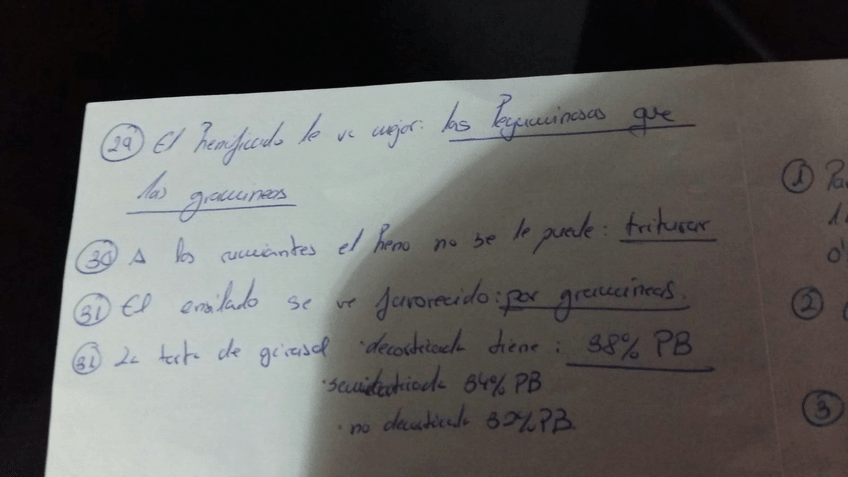 29 El henificado le va mejor: las leguminosas que
las gramineas
30 A los rumiantes el heno no se le puede: triturar
31 El ensilado se ve favorecido: por gramíneas.
32 La torta de girasol · decorticada tiene: 38% PB
· semidecorticada 34% PB
· no decorticada 32% PB
1 Pa
1.
0'
2
3